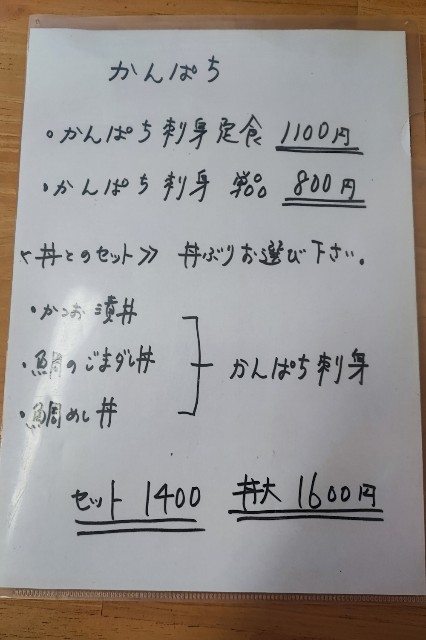 かんぱち
・かんぱち刺身定食 1100円
・かんぱち刺身 単品 800円
<丼とのセット≫ 丼ぶりお選び下さい。
・かつお漬丼
・鯛のごまだし丼
・鯛めし丼
かんぱち刺身
セット 1400 丼大 1600円